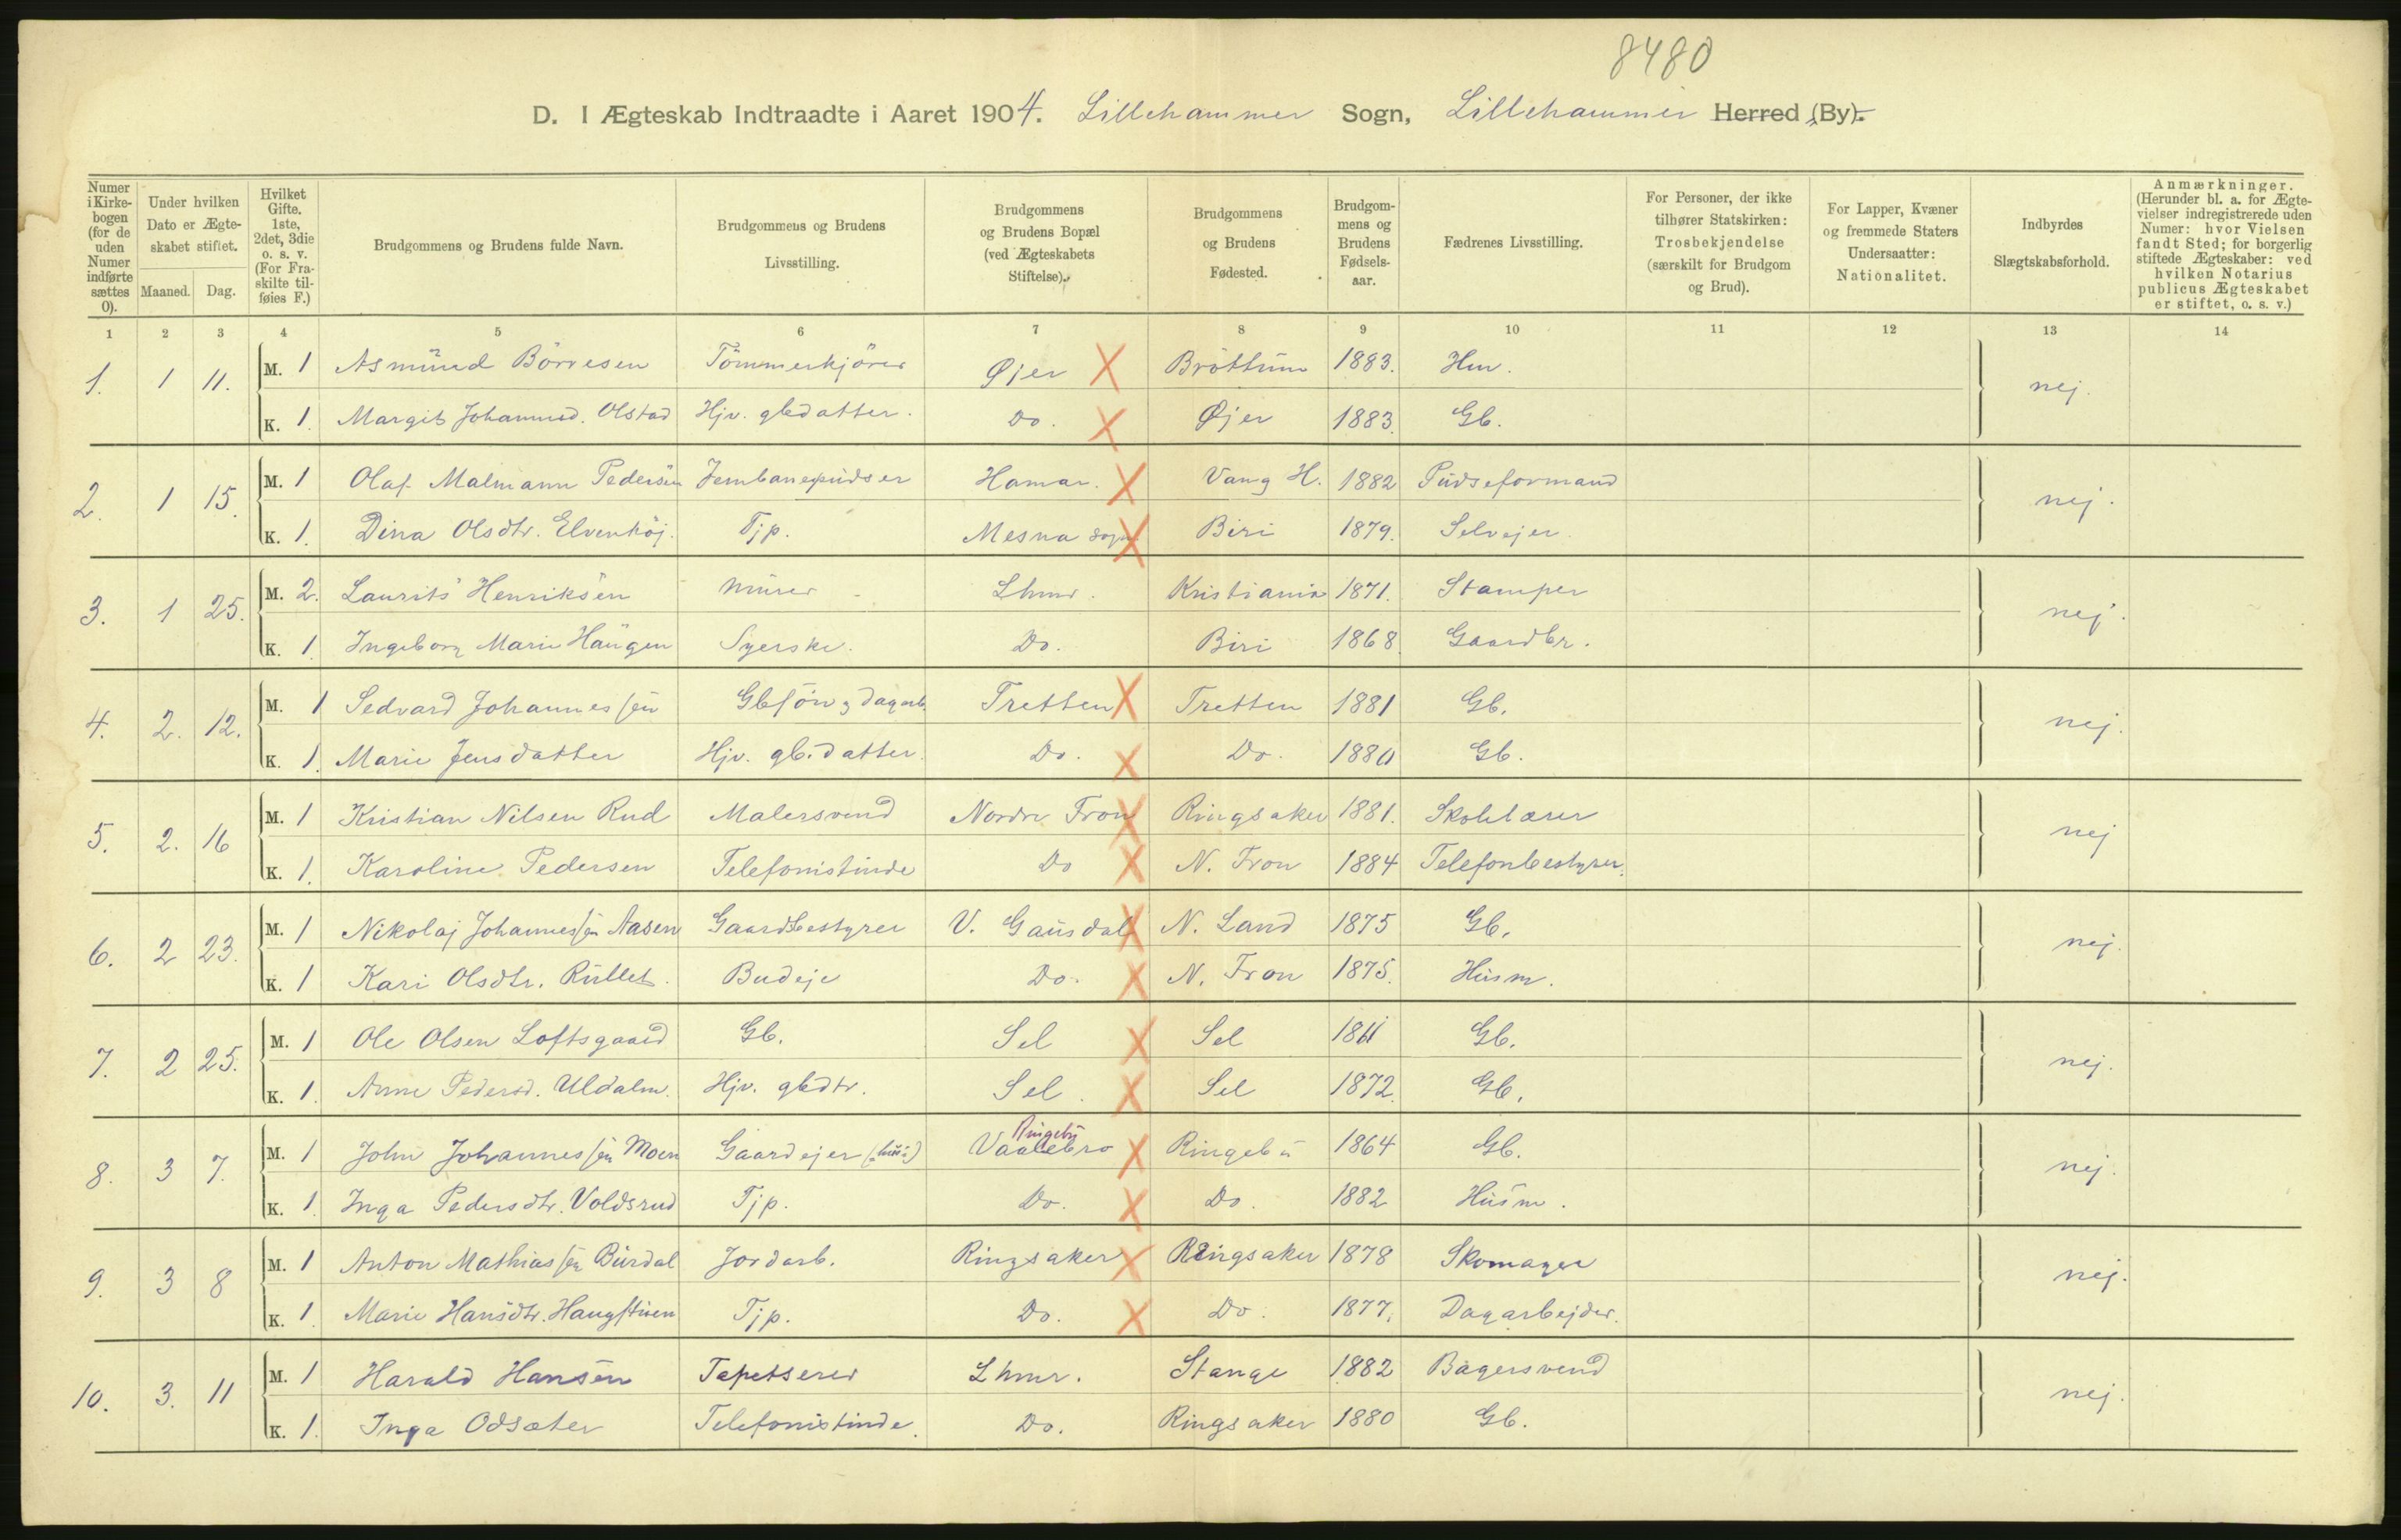 8480
D. I Ægteskab Indtraadte i Aaret 1904. Lillehammer Sogn, Lillehammer Herred (By).
Numer i Kirke-bogen (for de uden Numer indførte sættes 0). | Under hvilken Dato er Ægte-skabet stiftet. Maaned. Dag. | Hvilket Gifte. 1ste, 2det, 3die o. s. v. (For Fra-skilte til-føies F.) | Brudgommens og Brudens fulde Navn. | Brudgommens og Brudens Livsstilling. | Brudgommens og Brudens Bopæl (ved Ægteskabets Stiftelse). | Brudgommens og Brudens Fødested. | Brudgom-mens og Brudens Fødsels-aar. | Fædrenes Livsstilling. | For Personer, der ikke tilhører Statskirken: Trosbekjendelse (særskilt for Brudgom og Brud). | For Lapper, Kvæner og fremmede Staters Undersaatter: Nationalitet. | Indbyrdes Slægtskabsforhold. | Anmærkninger. (Herunder bl. a. for Ægte-vielser indregistrerede uden Numer: hvor Vielsen fandt Sted; for borgerlig stiftede Ægteskaber: ved hvilken Notarius publicus Ægteskabet er stiftet, o. s. v.)
1 2 3 4 5 6 7 8 9 10 11 12 13 14
1. 1 11. M. 1 Asmund Börresen Tömmerkjörer Øjer Bröttum 1883. Hm. nej.
K. 1. Margit Johannesd. Olstad Hjv. gbdatter. Do. Øjer 1883. Gb.
2. 1 15. M. 1 Olaf Malmann Pedersen Jernbanepudser Hamar. Vang H. 1882 Pudseformand nej.
K. 1. Dina Olsdtr. Elvenhöj. Tjp. Mesna sogn Biri 1879. Selvejer.
3. 1 25. M. 2. Laurits Henriksen Murer Lhmr. Kristiania 1871. Stamper nej.
K. 1. Ingeborg Marie Haugen Syerske. Do. Biri 1868. Gaardbr.
4. 2. 12. M. 1 Sedvard Johannessen Gbsön, dagarb. Tretten Tretten 1881 Gb. nej.
K. 1. Marie Jensdatter Hjv. gb.datter. Do. Do. 1880 Gb.
5. 2. 16 M. 1 Kristian Nilsen Rud Malersvend Nordre Fron Ringsaker 1881. Skolelærer nej
K. 1. Karoline Pedersen Telefonistinde Do N. Fron 1884 Telefonbestyrer.
6. 2 23. M. 1 Nikolaj Johannessen Aasen Gaardbestyrer V. Gausdal N. Land 1875 Gb. nej.
K. 1 Kari Olsdtr. Rullet. Budeje Do. N. Fron 1875. Husm.
7. 2 25. M. 1 Ole Olsen Loftsgaard Gb. Sel Sel Gb. nej.
K. 1. Anne Pedersd. Uldalm. Hjv. gbdtr. Sel. Sel 1872. Gb.
Ringebu
8. 3 7. M. 1 John Johannessen Moen Gaardejer Vaalebro Ringebu 1864 Gb. nej.
K. 1. Inga Pedersdtr. Voldsrud Tjp. Do. Do. 1882 Husm.
9. 3 8 M. 1 Anton Mathiassen Burdal Jordarb. Ringsaker Ringsaker 1878 Skomager nej.
K. 1. Marie Hansdtr. Haugstuen Tjp. Do. Do. 1877. Dagarbejder.
10. 3. 11 M. 1 Harald Hansen Tapetserer Lhmr. Stange 1882 Bagersvend nej.
K. 1. Inga Odsæter Telefonistinde. Do. Ringsaker 1880 Gb.